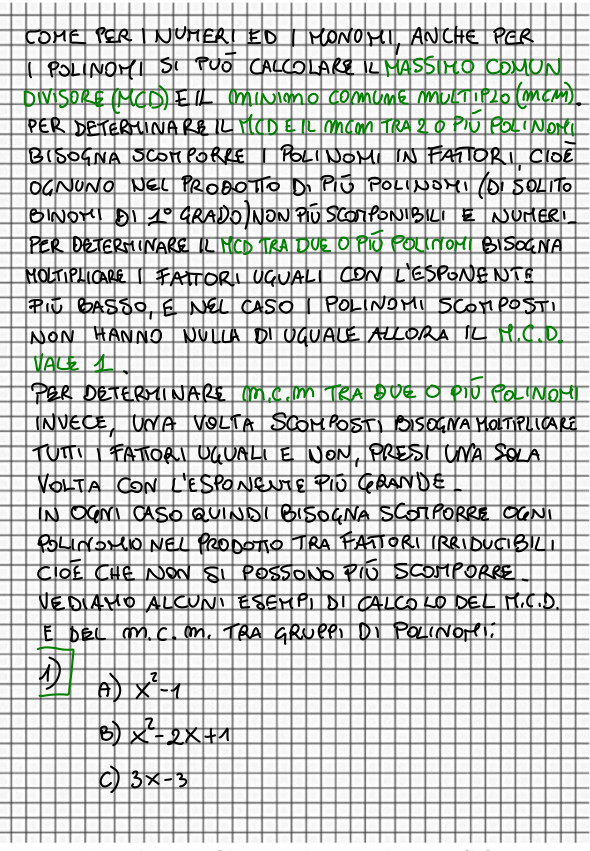 COME PER I NUMERI ED I MONOMI, ANCHE PER
I POLINOMI SI PUÒ CALCOLARE IL MASSIMO COMUN
DIVISORE (MCD) E IL MINIMO COMUNE MULTIPLO (mcm).
PER DETERMINARE IL MCD E IL mcm TRA 2 O PIÙ POLINOMI
BISOGNA SCOMPORRE I POLINOMI IN FATTORI, CIOÈ
OGNUNO NEL PRODOTTO DI PIÙ POLINOMI (DI SOLITO
BINOMI DI 1° GRADO) NON PIÙ SCOMPONIBILI E NUMERI.
PER DETERMINARE IL MCD TRA DUE O PIÙ POLINOMI BISOGNA
MOLTIPLICARE I FATTORI UGUALI CON L'ESPONENTE
PIÙ BASSO, E NEL CASO I POLINOMI SCOMPOSTI
NON HANNO NULLA DI UGUALE ALLORA IL M.C.D.
VALE 1.
PER DETERMINARE m.c.m TRA DUE O PIÙ POLINOMI
INVECE, UNA VOLTA SCOMPOSTI BISOGNA MOLTIPLICARE
TUTTI I FATTORI UGUALI E NON, PRESI UNA SOLA
VOLTA CON L'ESPONENTE PIÙ GRANDE.
IN OGNI CASO QUINDI BISOGNA SCOMPORRE OGNI
POLINOMIO NEL PRODOTTO TRA FATTORI IRRIDUCIBILI
CIOÈ CHE NON SI POSSONO PIÙ SCOMPORRE.
VEDIAMO ALCUNI ESEMPI DI CALCOLO DEL M.C.D.
E DEL m.c.m. TRA GRUPPI DI POLINOMI:
1)
A) x²-1
B) x²-2x+1
C) 3x-3